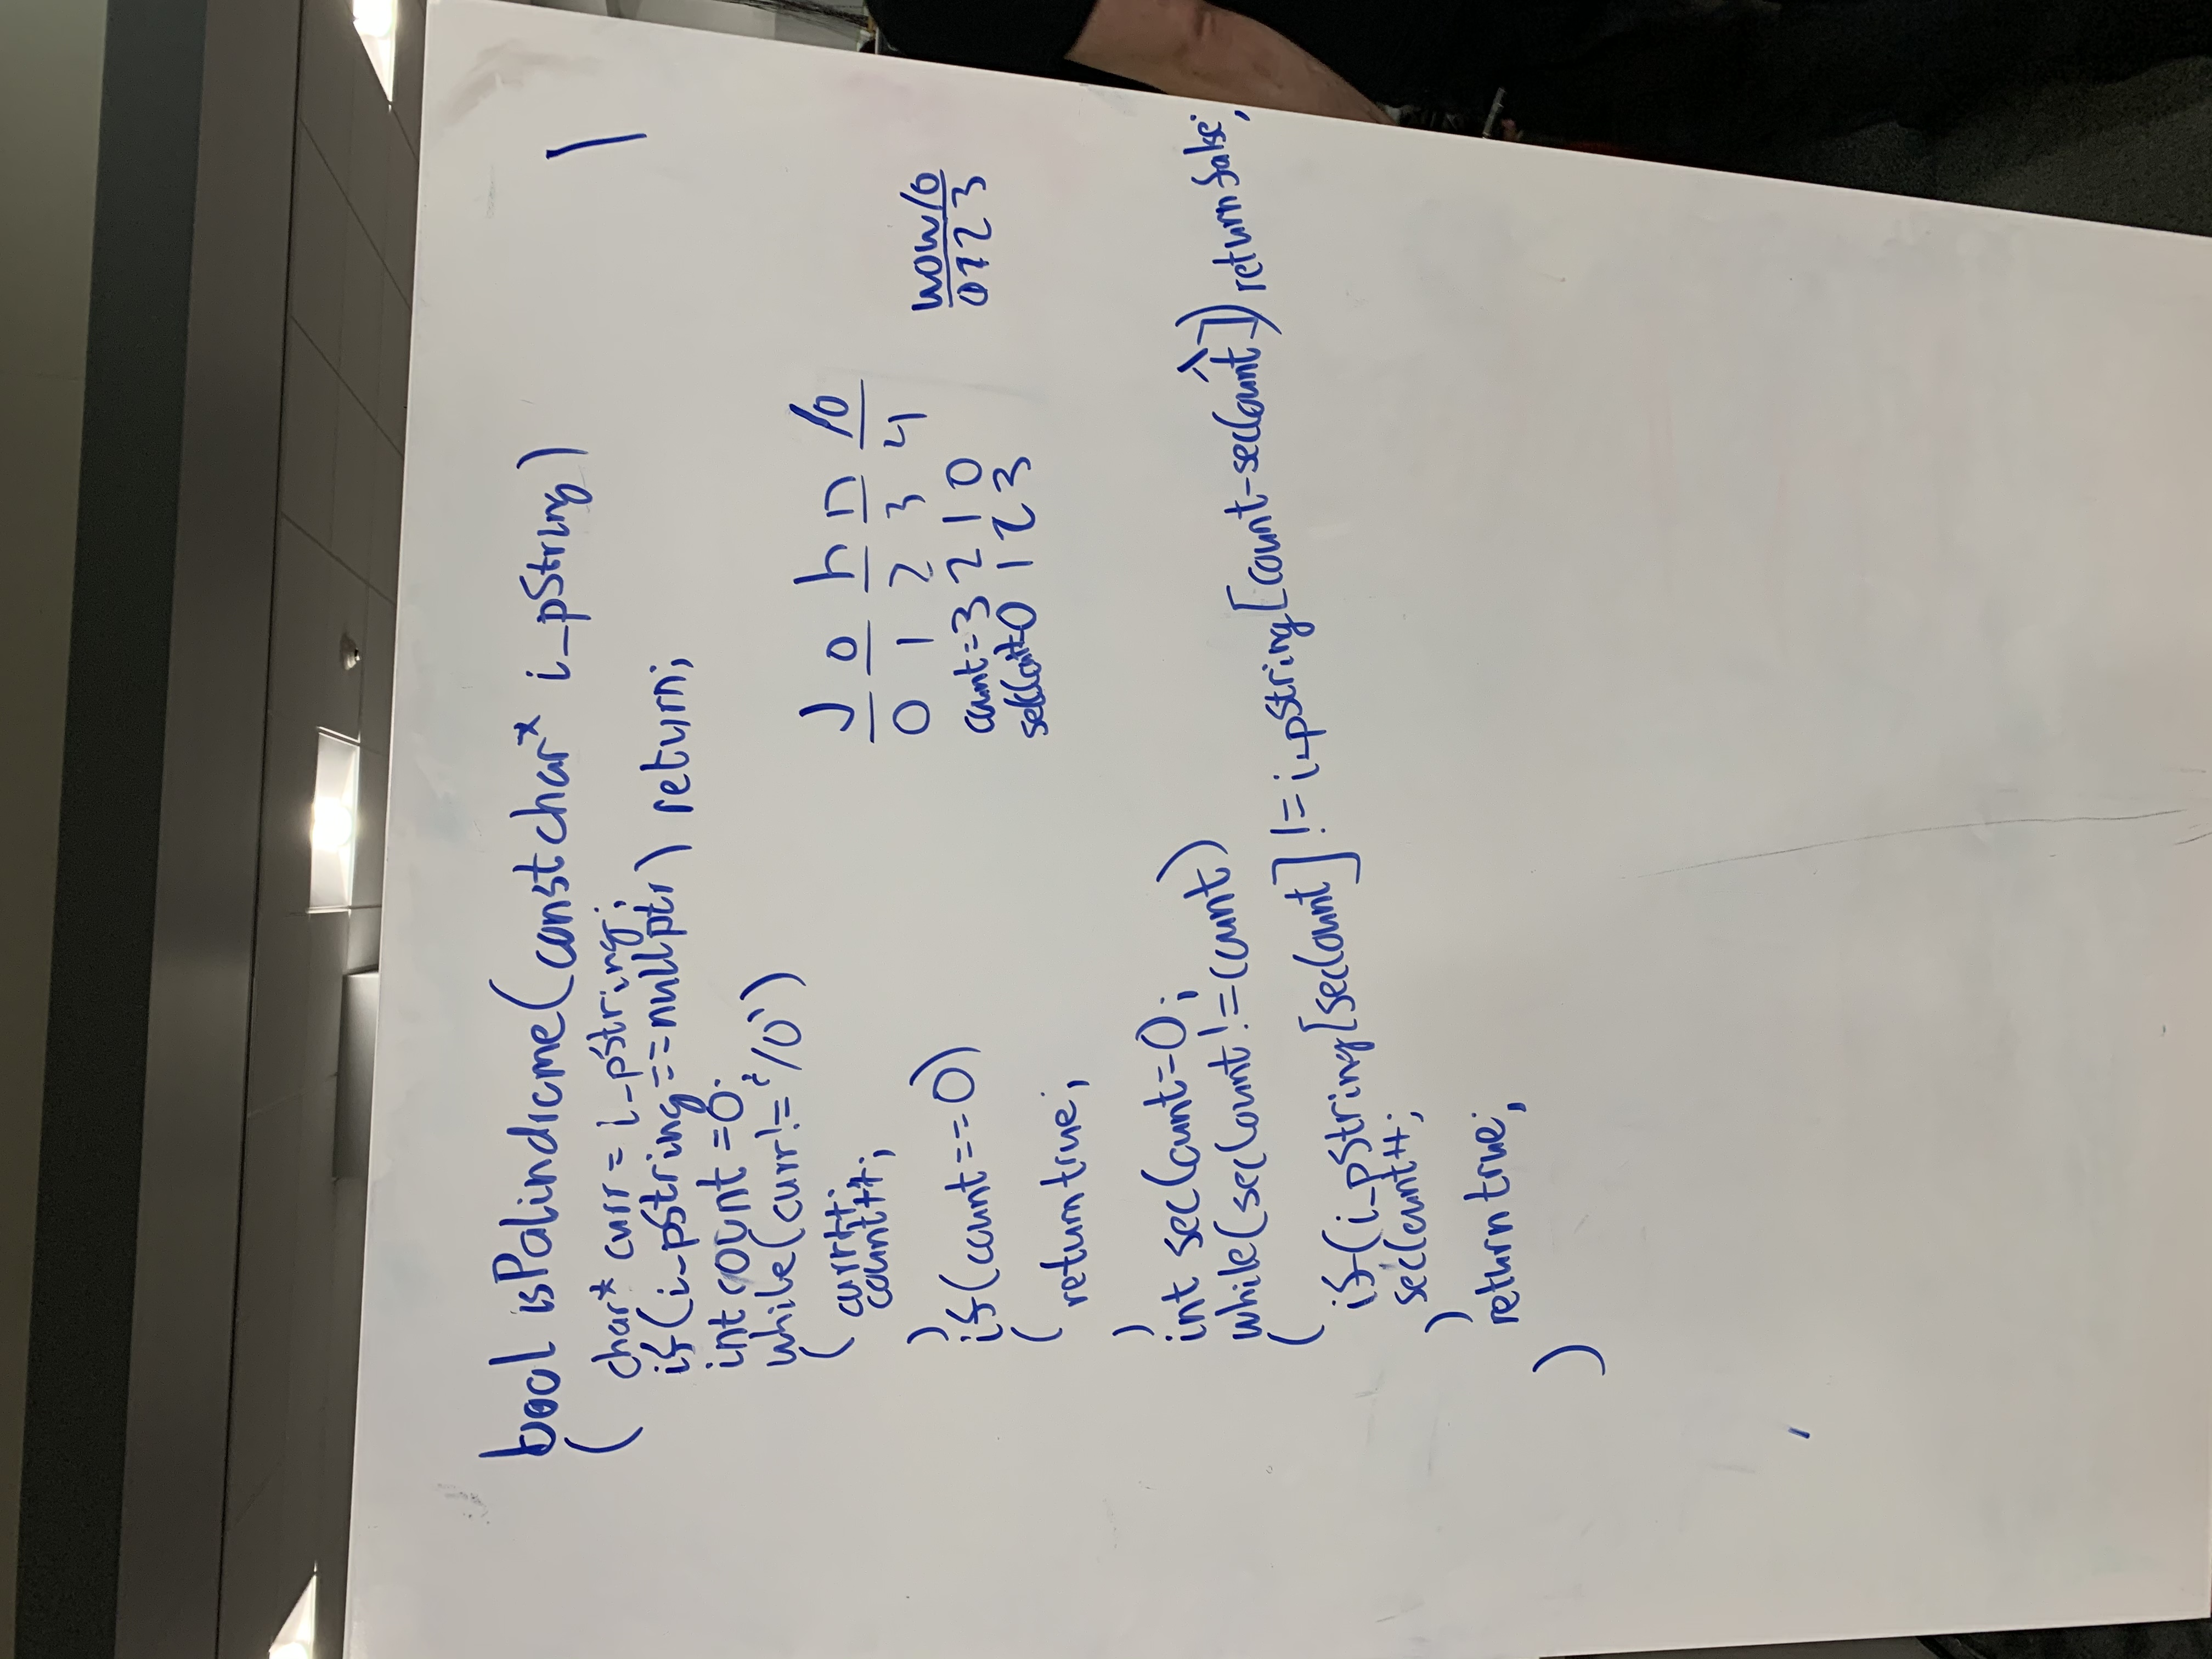 bool isPalindrome(const char* i_pString)
( char* curr = i_pString;
if(i_pString==nullptr) return;
int count =0;
while(curr!='/0')
( curr++;
count++;
)
if(count==0)
(
return true;
)
int secCount=0;
while(secCount!=count)
(
if(i_pString[secCount]!=i_pString[count-secCount]) return false;
secCount++;
)
return true;
)
J o h n /0
0 1 2 3 4
count=3 2 1 0
secCount=0 1 2 3
wow/0
0123